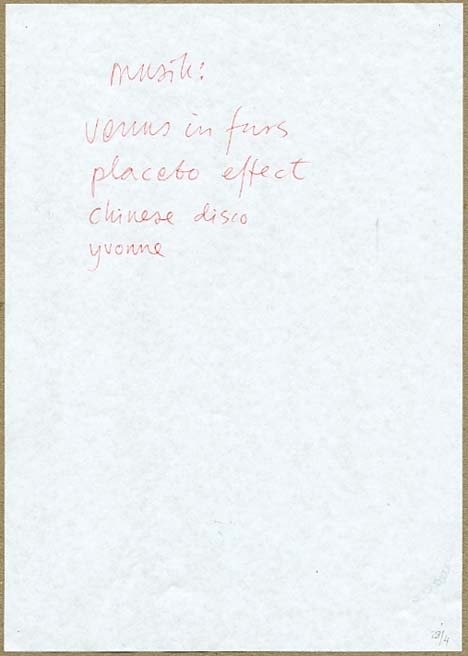 musik:
venus in furs
placebo effect
chinese disco
yvonne
29/4